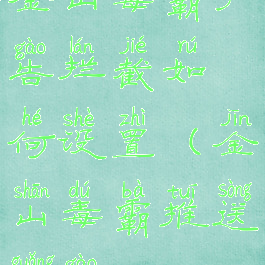 金山毒霸
gào lán jié rú
告拦截如
hé shè zhì jīn
何设置（金
shān dú bà tuī sòng
山毒霸推送
guǎng gào